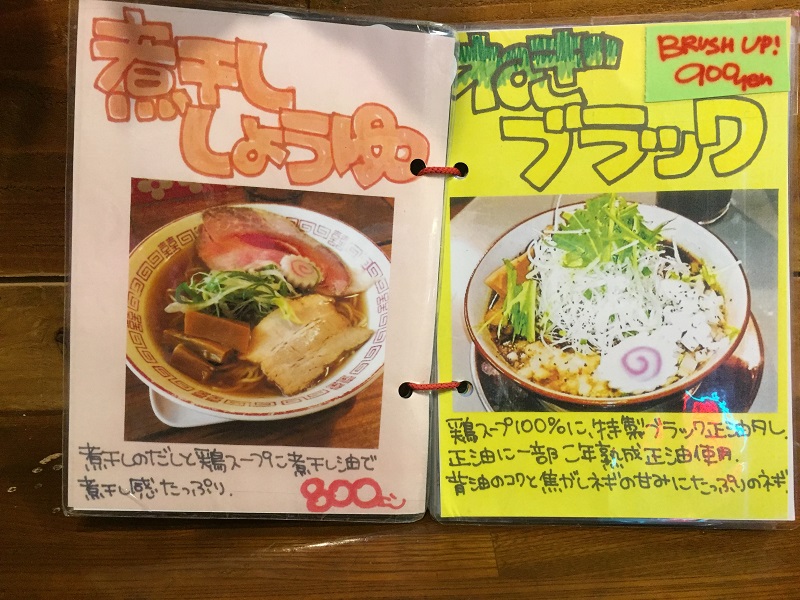 煮干し
しょうゆ
煮干しのだしと鶏スープに煮干し油で
煮干し感たっぷり.
800エン
ねぎ
ブラック
BRUSH UP!
900yen
鶏スープ100%に、特製ブラック正油ダレ.
正油に一部二年熟成正油使用.
背油のコクと焦がしネギの甘みにたっぷりのネギ.